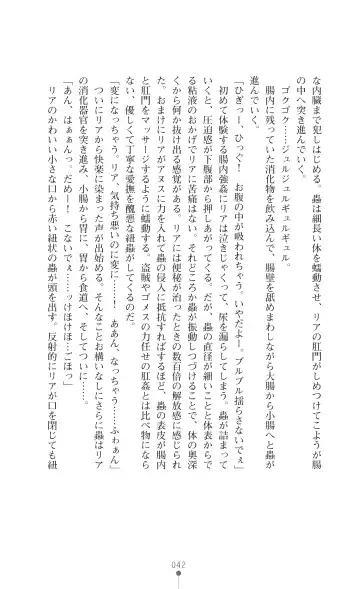 な内臓まで犯しはじめる。蟲は細長い体を蠕動させ、リアの肛門がしめつけてこようが腸
の中へ突き進んでいく。
ゴクゴク……ジュルジュルギュルギュル。
腸内に残っていた消化物を飲み込んで、腸壁を舐めまわしながら大腸から小腸へと蟲が
進んでいく。
「ひぎっー、ひっぐ！　お腹の中が吸われちゃう。いやだよー。ブルブル揺らさないでぇ」
初めて体験する腸内強姦にリアは泣きじゃくって、尿を漏らしてしまう。蟲が詰まって
いくと、圧迫感が下腹部から押しあがってくる。だが、蟲の直径が細いことと体表からで
る粘液のおかげでリアに苦痛はない。それどころか蟲が振動しつづけることで、体の奥深
くから何か抜け出る感覚がある。リアには便秘が治ったときの数百倍の解放感に感じられ
た。おまけにリアがアヌスに力を入れて蟲の侵入に抵抗すればするほど、蟲の表皮が腸内
と肛門をマッサージするように蠕動する。盗賊やゴメスの力任せの肛姦とは比べ物になら
ない、優しくて丁寧な愛撫を醜悪な蟲がしてくるのだ。
「変になっちゃう。リア、気持ち悪いのに変に……！　ああん、なっちゃう……ふわぁん」
ついにリアから快楽に染まった声が出始める。そんなことお構いなしにさらに蟲はリア
の消化器官を突き進み、小腸から胃に、胃から食道へ、そしてついに……。
「あん、はぁぁんっ。だめー！　こないでぇ……ッけほけほ…ごほっ」
リアのかわいい小さな口から赤い紐状の蟲が頭を出す。反射的にリアが口を閉じても紐
042